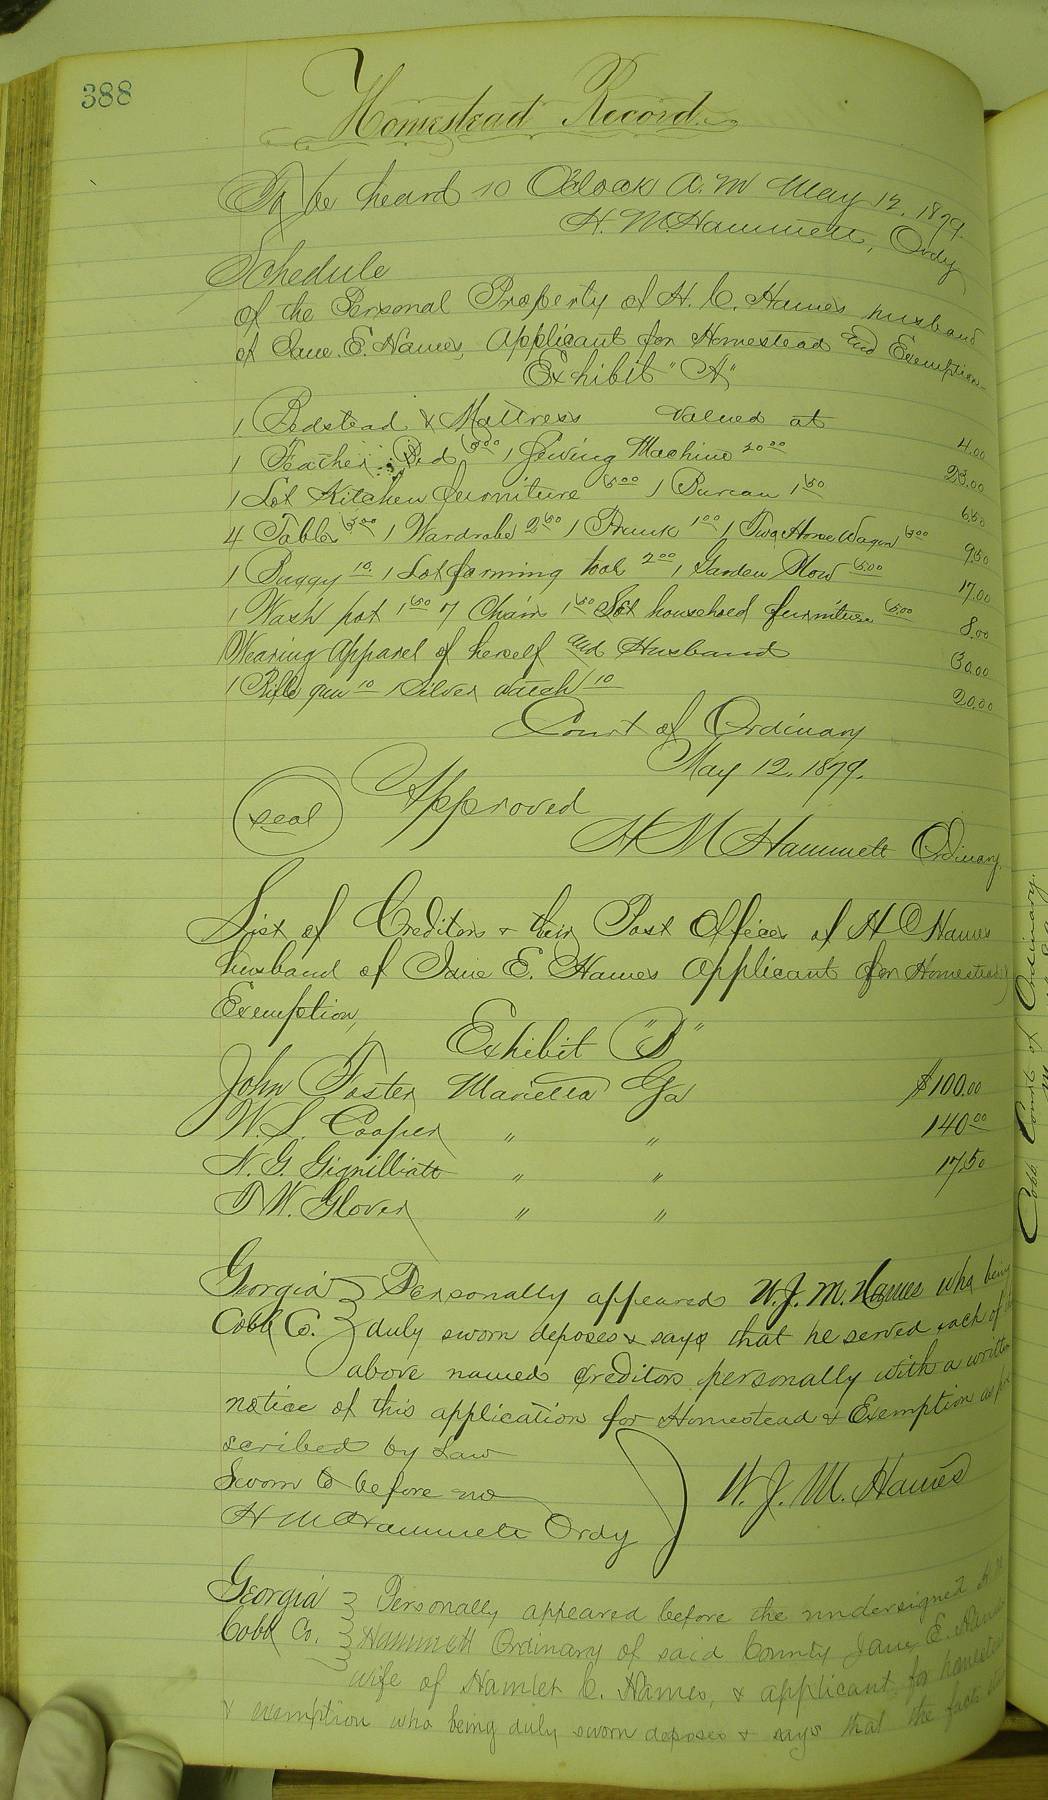 388
Homestead Record.
To be heard 10 Oclock A. M May 12. 1879.
H. M. Hammett, Ordy
Schedule
of the Personal Property of H. C. Hames husband
of Jane. E. Hames, Applicant for Homestead and Exemption
Exhibit "A"
1 Bedstead & Mattress valued at 4.00
1 Feather Bed 5.00 1 Sewing Machine 20.00 25.00
1 Lot Kitchen furniture 5.00 1 Bureau 1.50 6.50
4 Table 1 Wardrobe 2.50 1 Trunk 1.00 1 Two Horse Wagon 9.50
1 Buggy 10. 1 Lot farming tool 2.00 1 Garden Plow 5.00 17.00
1 Wash pot 1.50 7 Chairs 1.50 Lot household furniture 5.00 8.00
Wearing Apparel of herself and Husband 30.00
1 Rifle gun 10 1 Silver watch 10 20.00
Court of Ordinary
May 12. 1879.
seal Approved
H M Hammett Ordinary.
List of Creditors & their Post Offices of H C Hames
husband of Jane E. Hames Applicant for Homestead
Exemption,
Exhibit "B"
John Foster Marietta Ga $100.00
W. S. Cooper " " 140.00
N. G. Gignilliatt " " 17.50
T W. Glover " "
Georgia } Personally appeared W. J. M. Hames who being
Cobb Co. } duly sworn deposes & says that he served each of the
above named creditors personally with a written
notice of this application for Homestead & Exemption as pre
scribed by Law
Sworn to before me W. J. M. Hames
H M Hammett Ordy
Georgia } Personally appeared before the undersigned H. M
Cobb Co. } Hammett Ordinary of said County Jane E. Hames
wife of Hamlet C. Hames, & applicant for homestead
& exemption who being duly sworn deposes & says that the facts
Cobb Court of Ordinary.